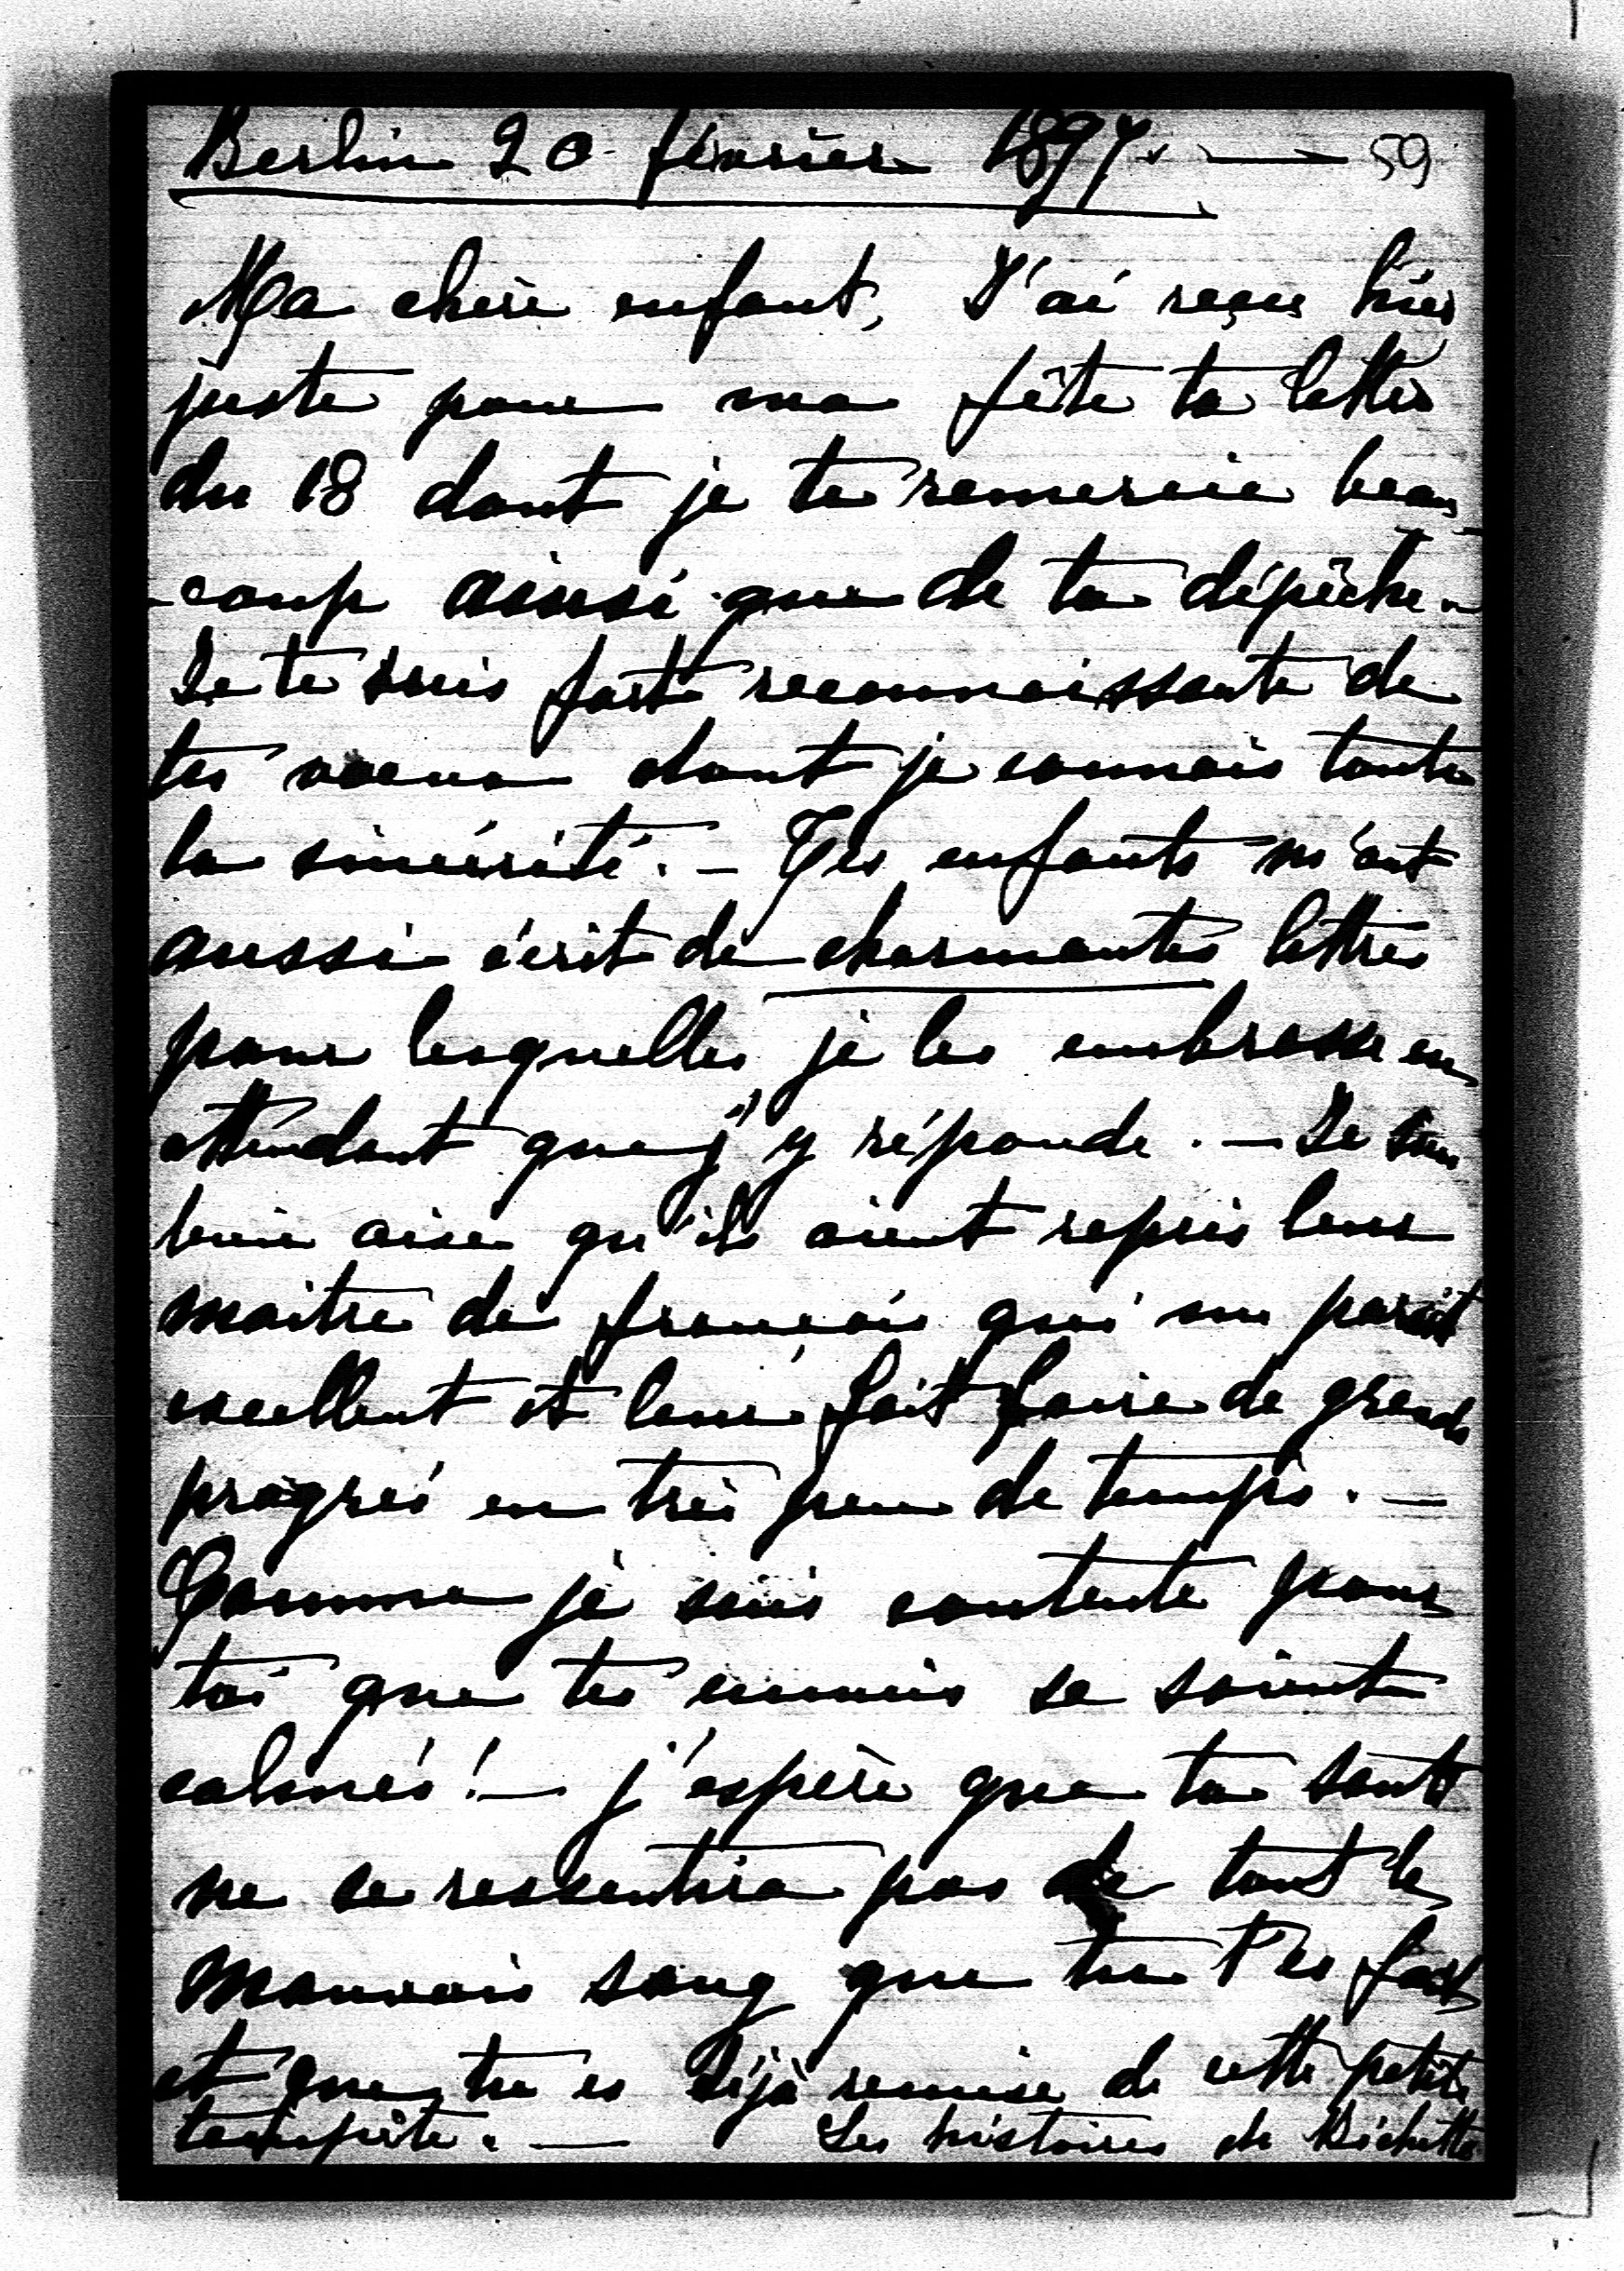 Berlin 20 février 1897. — 59
Ma chère enfant, J'ai reçu hier
juste pour ma fête ta lettre
du 18 dont je te remercie beau
-coup ainsi que de ta dépêche.
Je te suis forte reconnaissante de
tes voeux dont je connais toute
la sincérité. — Tes enfants m'ont
aussi écrit de charmantes lettres
pour lesquelles je les embrasse en
attendant que j'y réponde. — Je suis
bien aise qu'ils aient repris leur
maitre de français qui me parait
excellent et leur fait faire de grands
progrès en très peu de temps. —
Comme je suis contente pour
toi que tes ennuis se soient
calmés! — j'espère que ta santé
ne se ressentira pas de tout le
mauvais sang que tu t'es fait
et que tu es déjà remise de cette petite
tempête. — Les histoires de Bichette